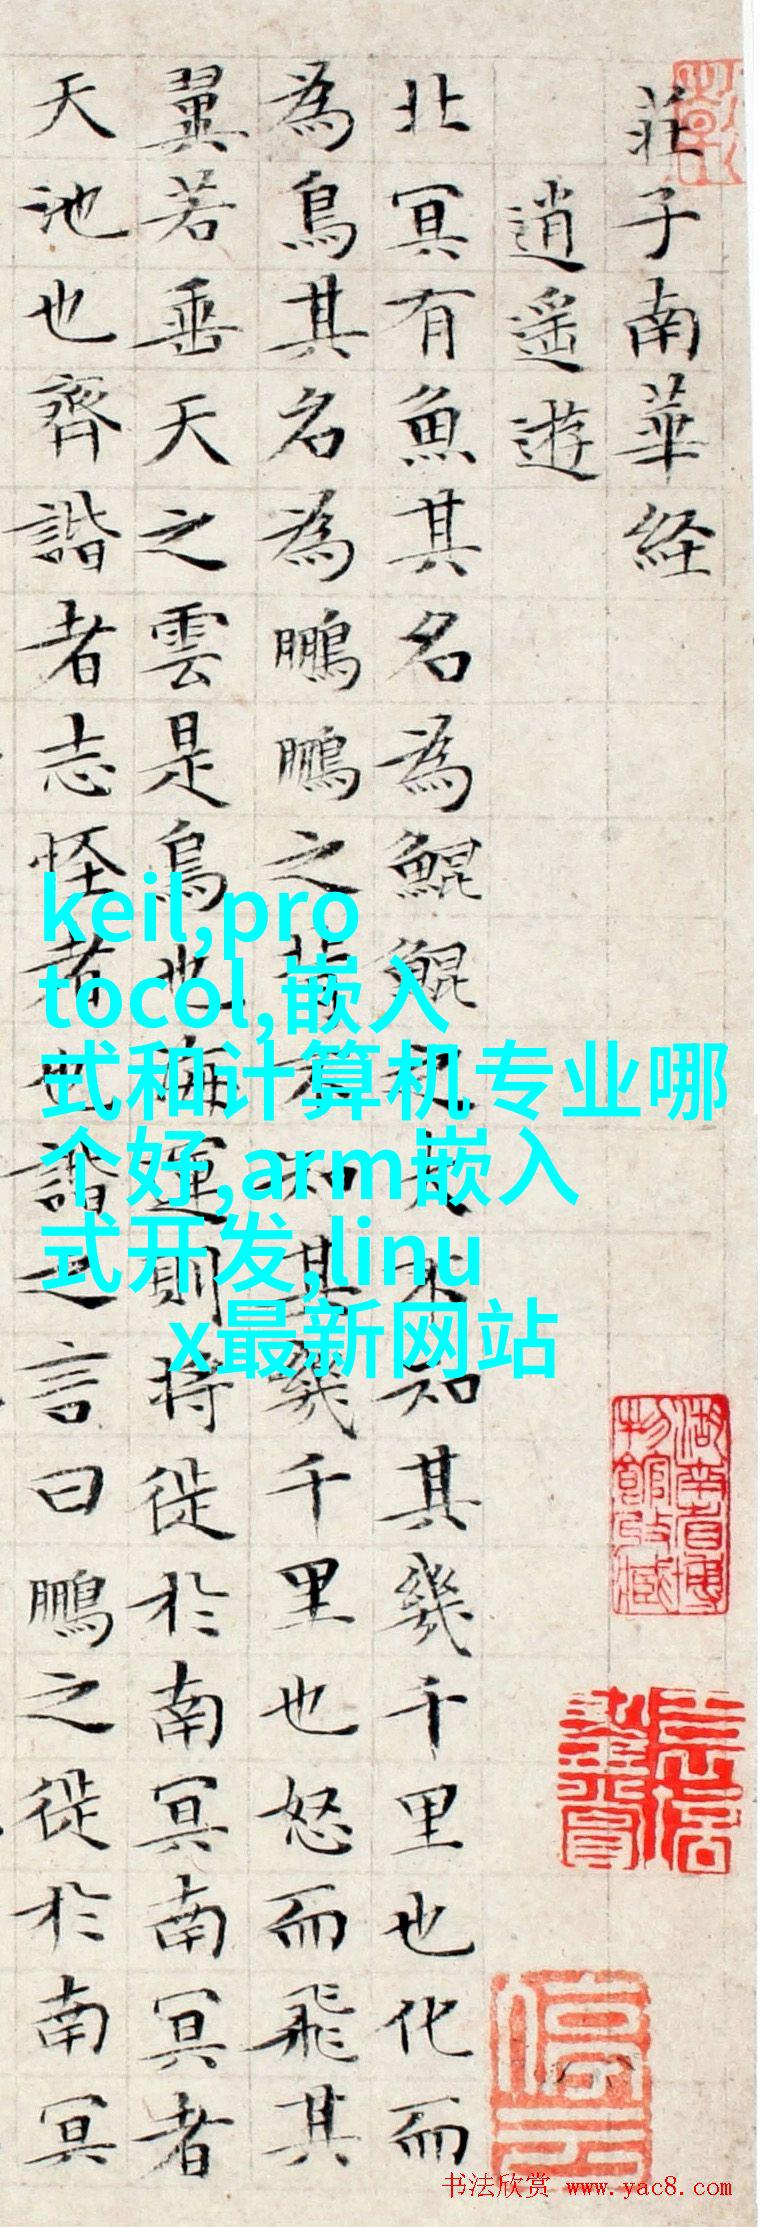 莊子南華経
逍遥遊
北冥有魚其名為鯤鯤之大不知其幾千里也化而
為鳥其名為鵬鵬之背不知其幾千里也怒而飛其
翼若垂天之雲是鳥也海運則將徙於南冥南冥者
天池也齊諧者志怪者也諧之言曰鵬之徙於南冥
keil,pro
tocol,嵌入
式和计算机专业哪
个好,arm嵌入
式开发,linu
x最新网站
湖南省博
物館收藏
书法欣赏 www.yac8.com